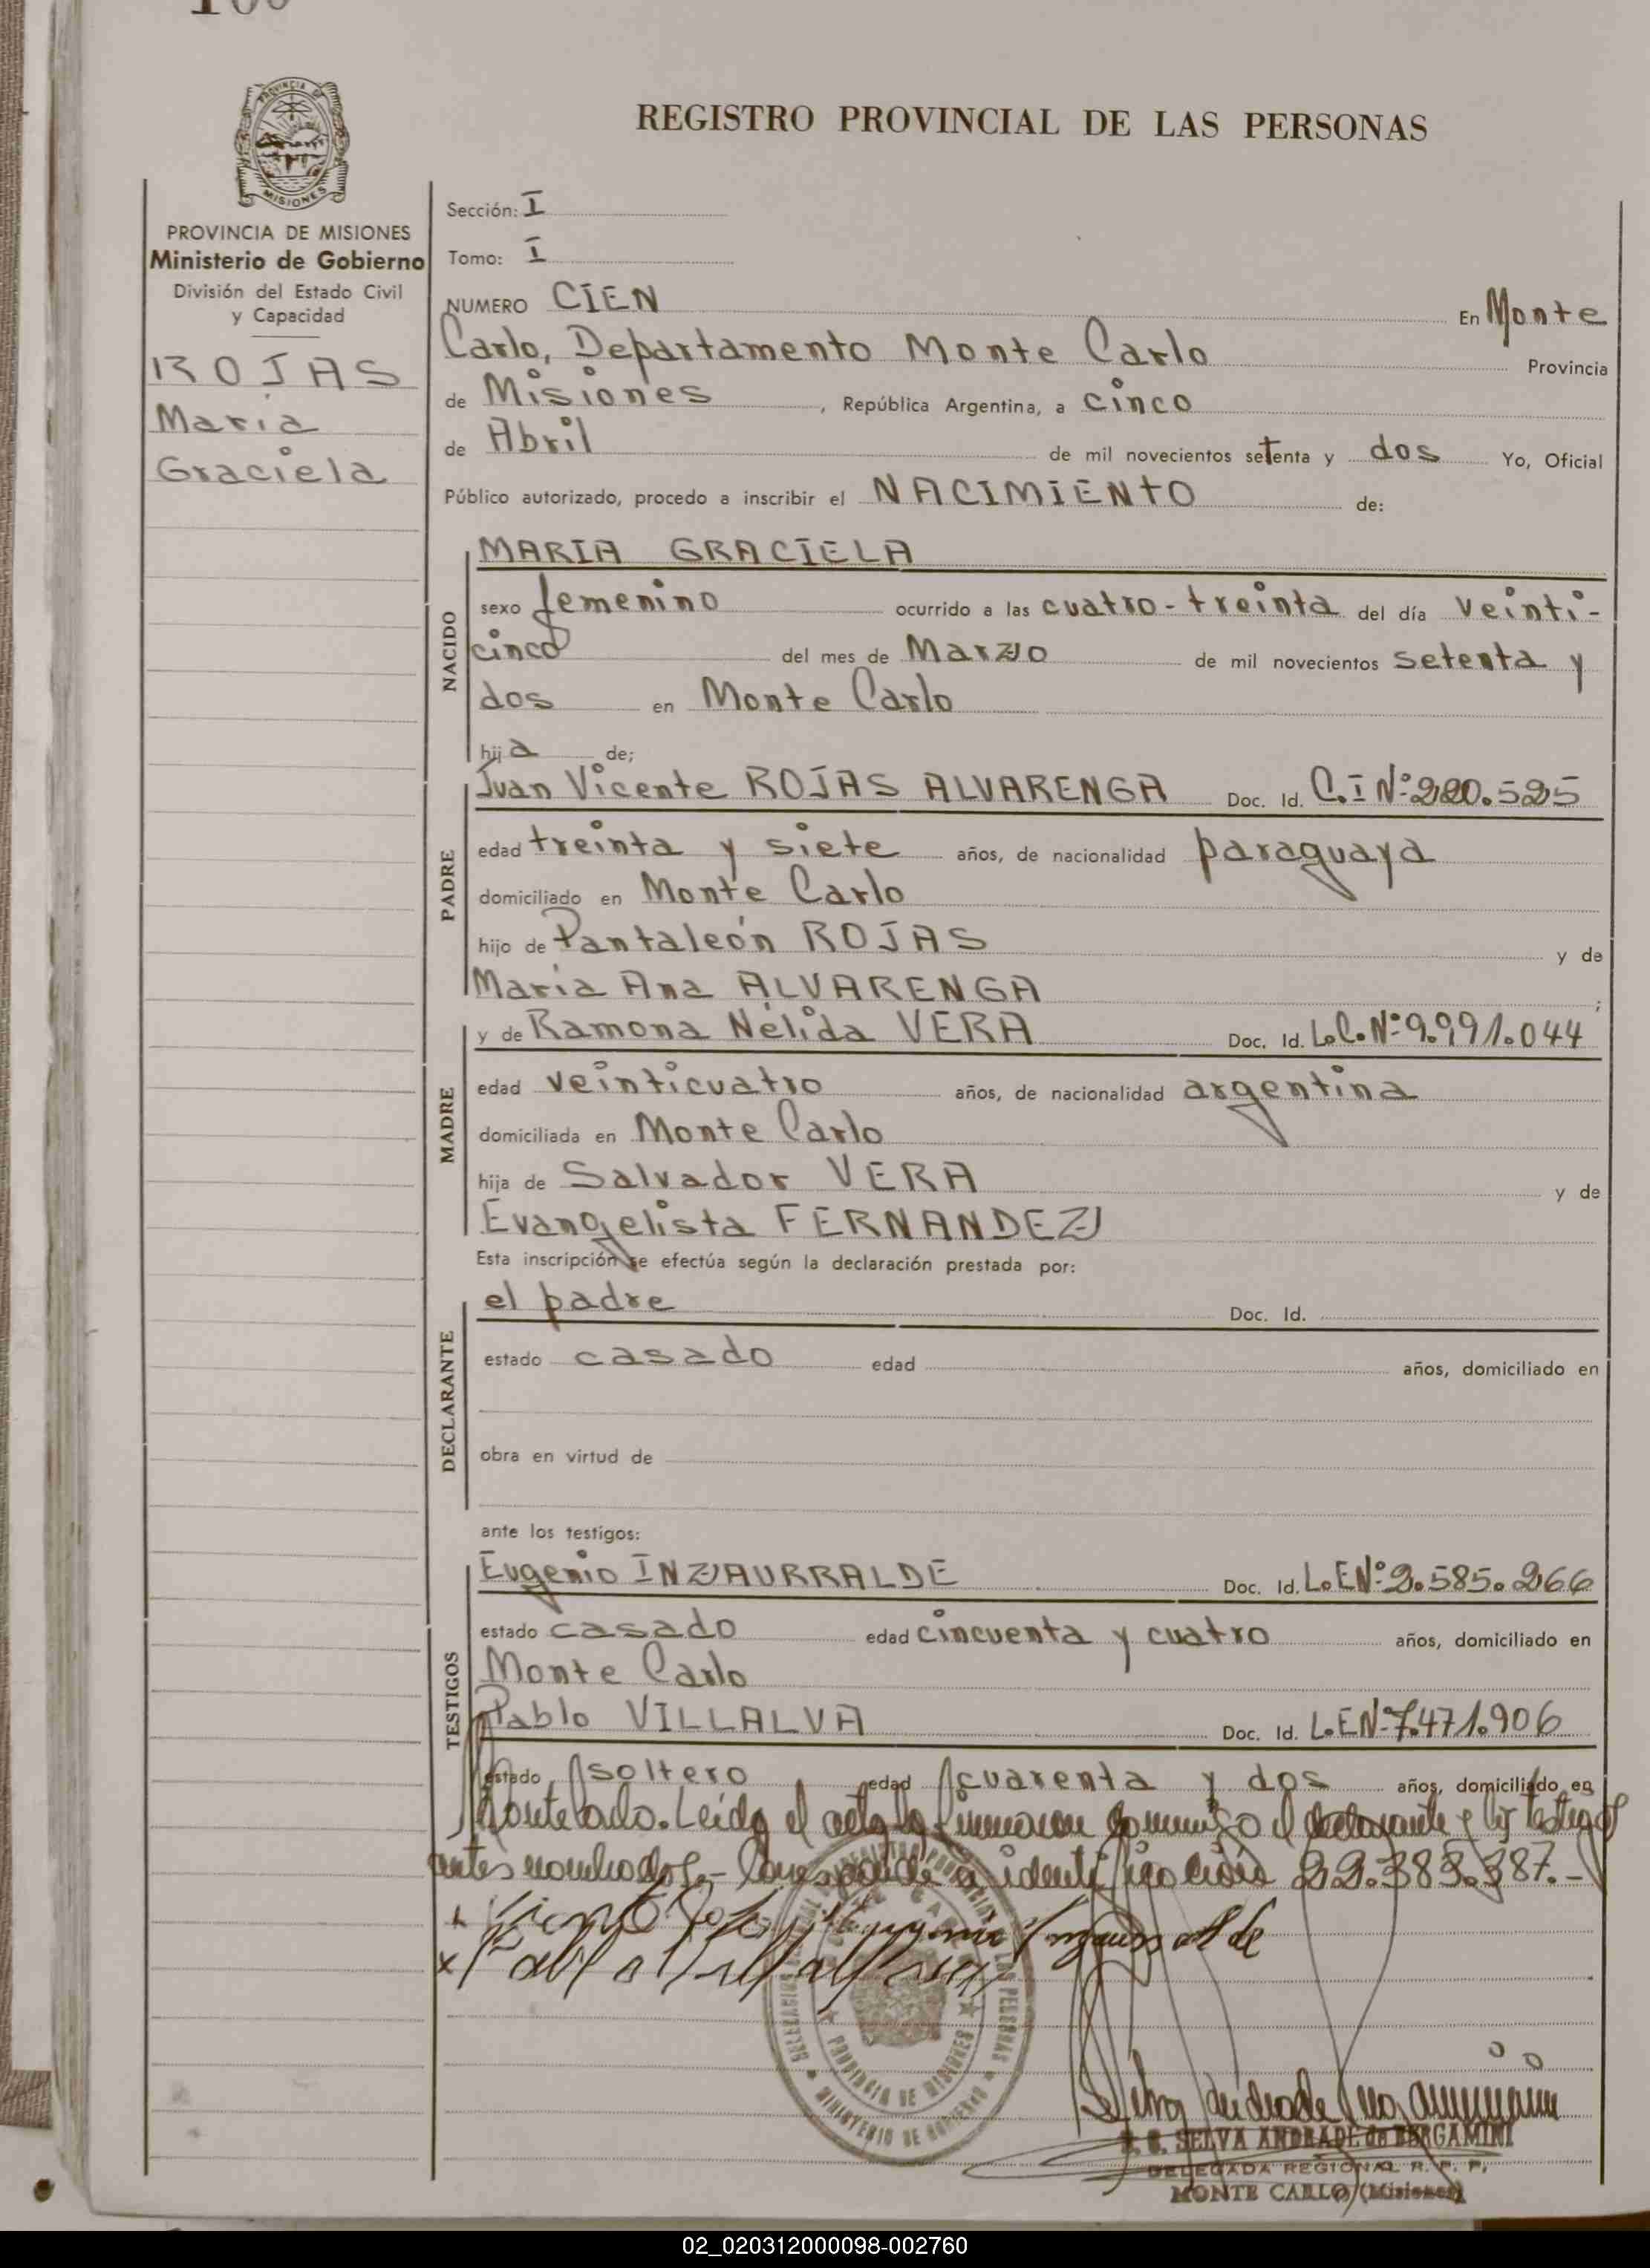 100
PROVINCIA DE
MISIONES
REGISTRO PROVINCIAL DE LAS PERSONAS
PROVINCIA DE MISIONES
Ministerio de Gobierno
División del Estado Civil
y Capacidad
ROJAS
Maria
Graciela
Sección: I
Tomo: I
NUMERO CIEN En Monte
Carlo, Departamento Monte Carlo Provincia
de Misiones, República Argentina, a cinco
de Abril de mil novecientos setenta y dos Yo, Oficial
Público autorizado, procedo a inscribir el NACIMIENTO de:
NACIDO
MARIA GRACIELA
sexo femenino ocurrido a las cuatro-treinta del día veinti-
cinco del mes de Marzo de mil novecientos setenta y
dos en Monte Carlo
hija de;
PADRE
Juan Vicente ROJAS ALVARENGA Doc. Id. C.I Nº 220.525
edad treinta y siete años, de nacionalidad paraguaya
domiciliado en Monte Carlo
hijo de Pantaleón ROJAS y de
Maria Ana ALVARENGA;
MADRE
y de Ramona Nélida VERA Doc. Id. L.C.Nº 9.991.044
edad veinticuatro años, de nacionalidad argentina
domiciliada en Monte Carlo
hija de Salvador VERA y de
Evangelista FERNANDEZ
Esta inscripción se efectúa según la declaración prestada por:
DECLARANTE
el padre Doc. Id.
estado casado edad años, domiciliado en
obra en virtud de
ante los testigos:
TESTIGOS
Eugenio INZAURRALDE Doc. Id. L.E Nº 2.585.266
estado casado edad cincuenta y cuatro años, domiciliado en
Monte Carlo
Pablo VILLALVA Doc. Id. L.E Nº 7.471.906
estado soltero edad cuarenta y dos años, domiciliado en
Montecarlo. Leída el acta la firmaron conmigo el declarante y los testigos
antes nombrados.- Corresponde a identificación 22.383.387.-
Eugenio Inzaurralde
MINISTERIO DE GOBIERNO
PROVINCIA DE MISIONES
LAS PERSONAS
SELVA ANDRADE de BERGAMINI
DELEGADA REGIONAL R. P. P.
MONTE CARLO (Misiones)
02_020312000098-002760